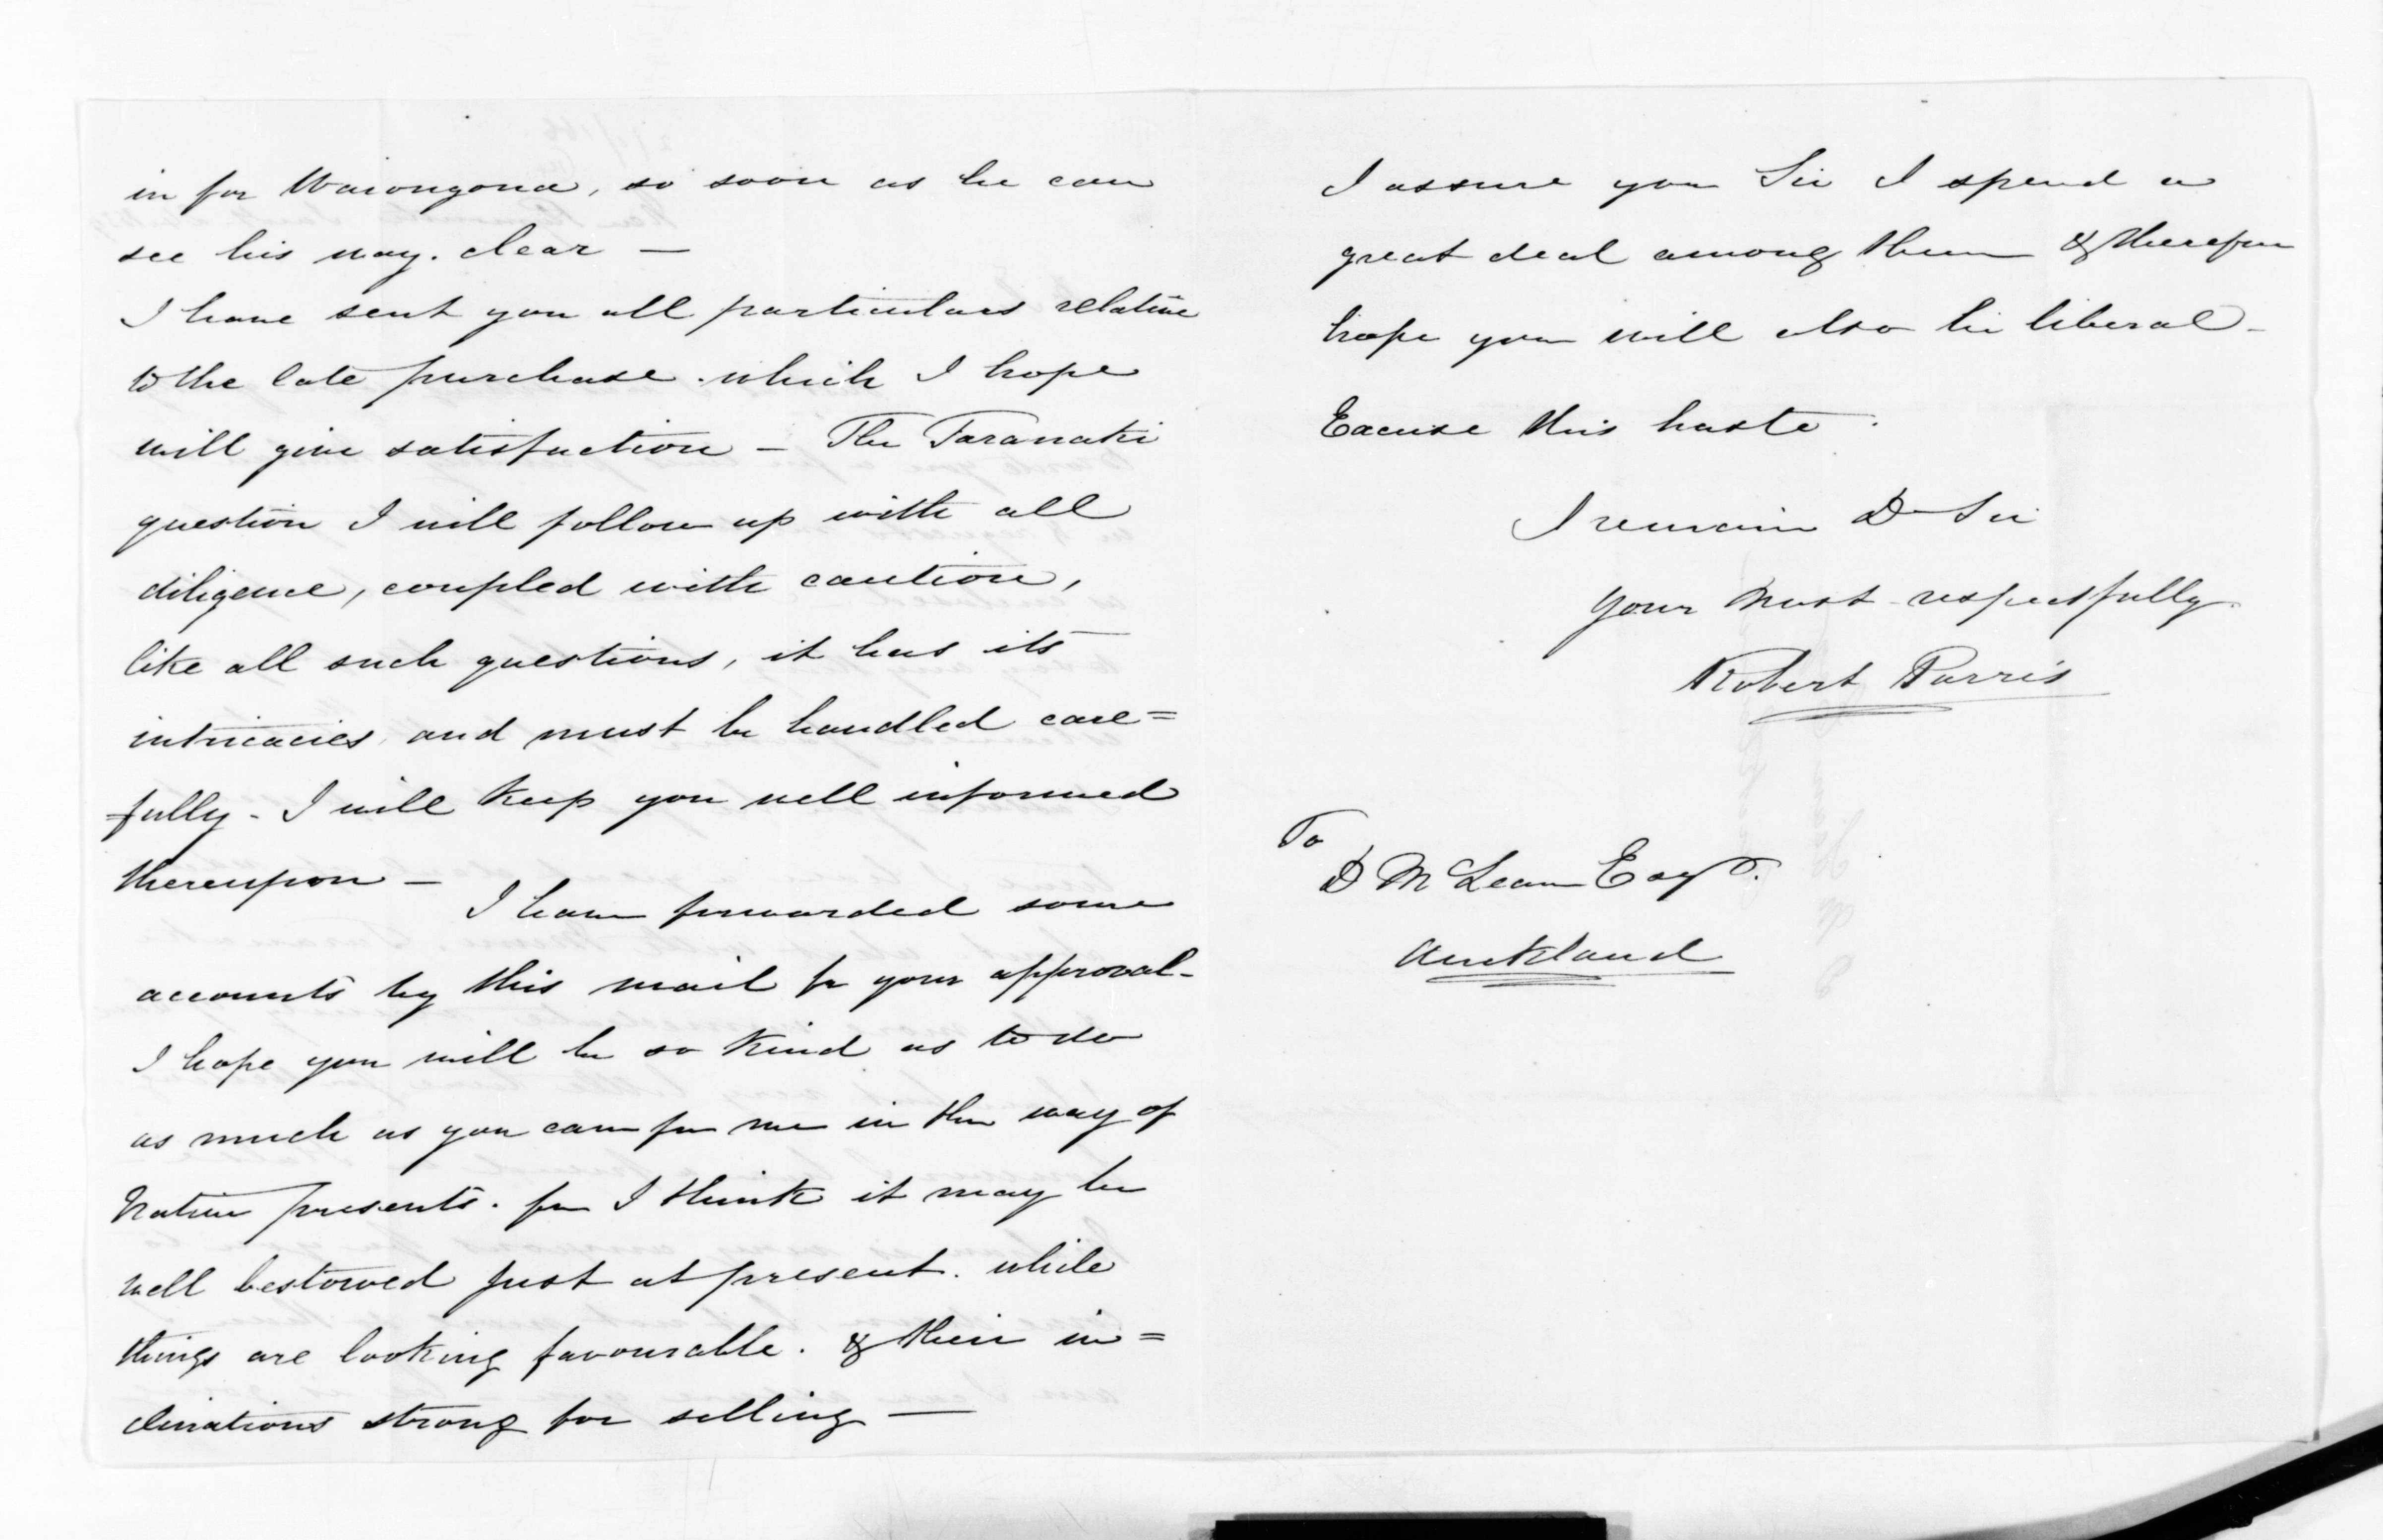 in for Waiongona, so soon as he can
see his way. clear —
I have sent you all particulars relative
to the late purchase. which I hope
will give satisfaction — The Taranaki
question I will follow up with all
diligence, coupled with caution,
like all such questions, it has its
intricacies and must be handled care=
=fully - I will keep you well informed
thereupon —
I have forwarded some
accounts by this mail for your approval -
I hope you will be so kind as to do
as much as you can for me in the way of
Native presents. for I think it may be
well bestowed just at present. while
things are looking favourable. & their in=
clinations strong for selling —
I assure you Sir I spend a
great deal among them & therefore
hope you will also be liberal -
Excuse this haste.
I remain D Sir
Your Most respectfully
Robert Parris
To
D McLean Esqr.
Auckland